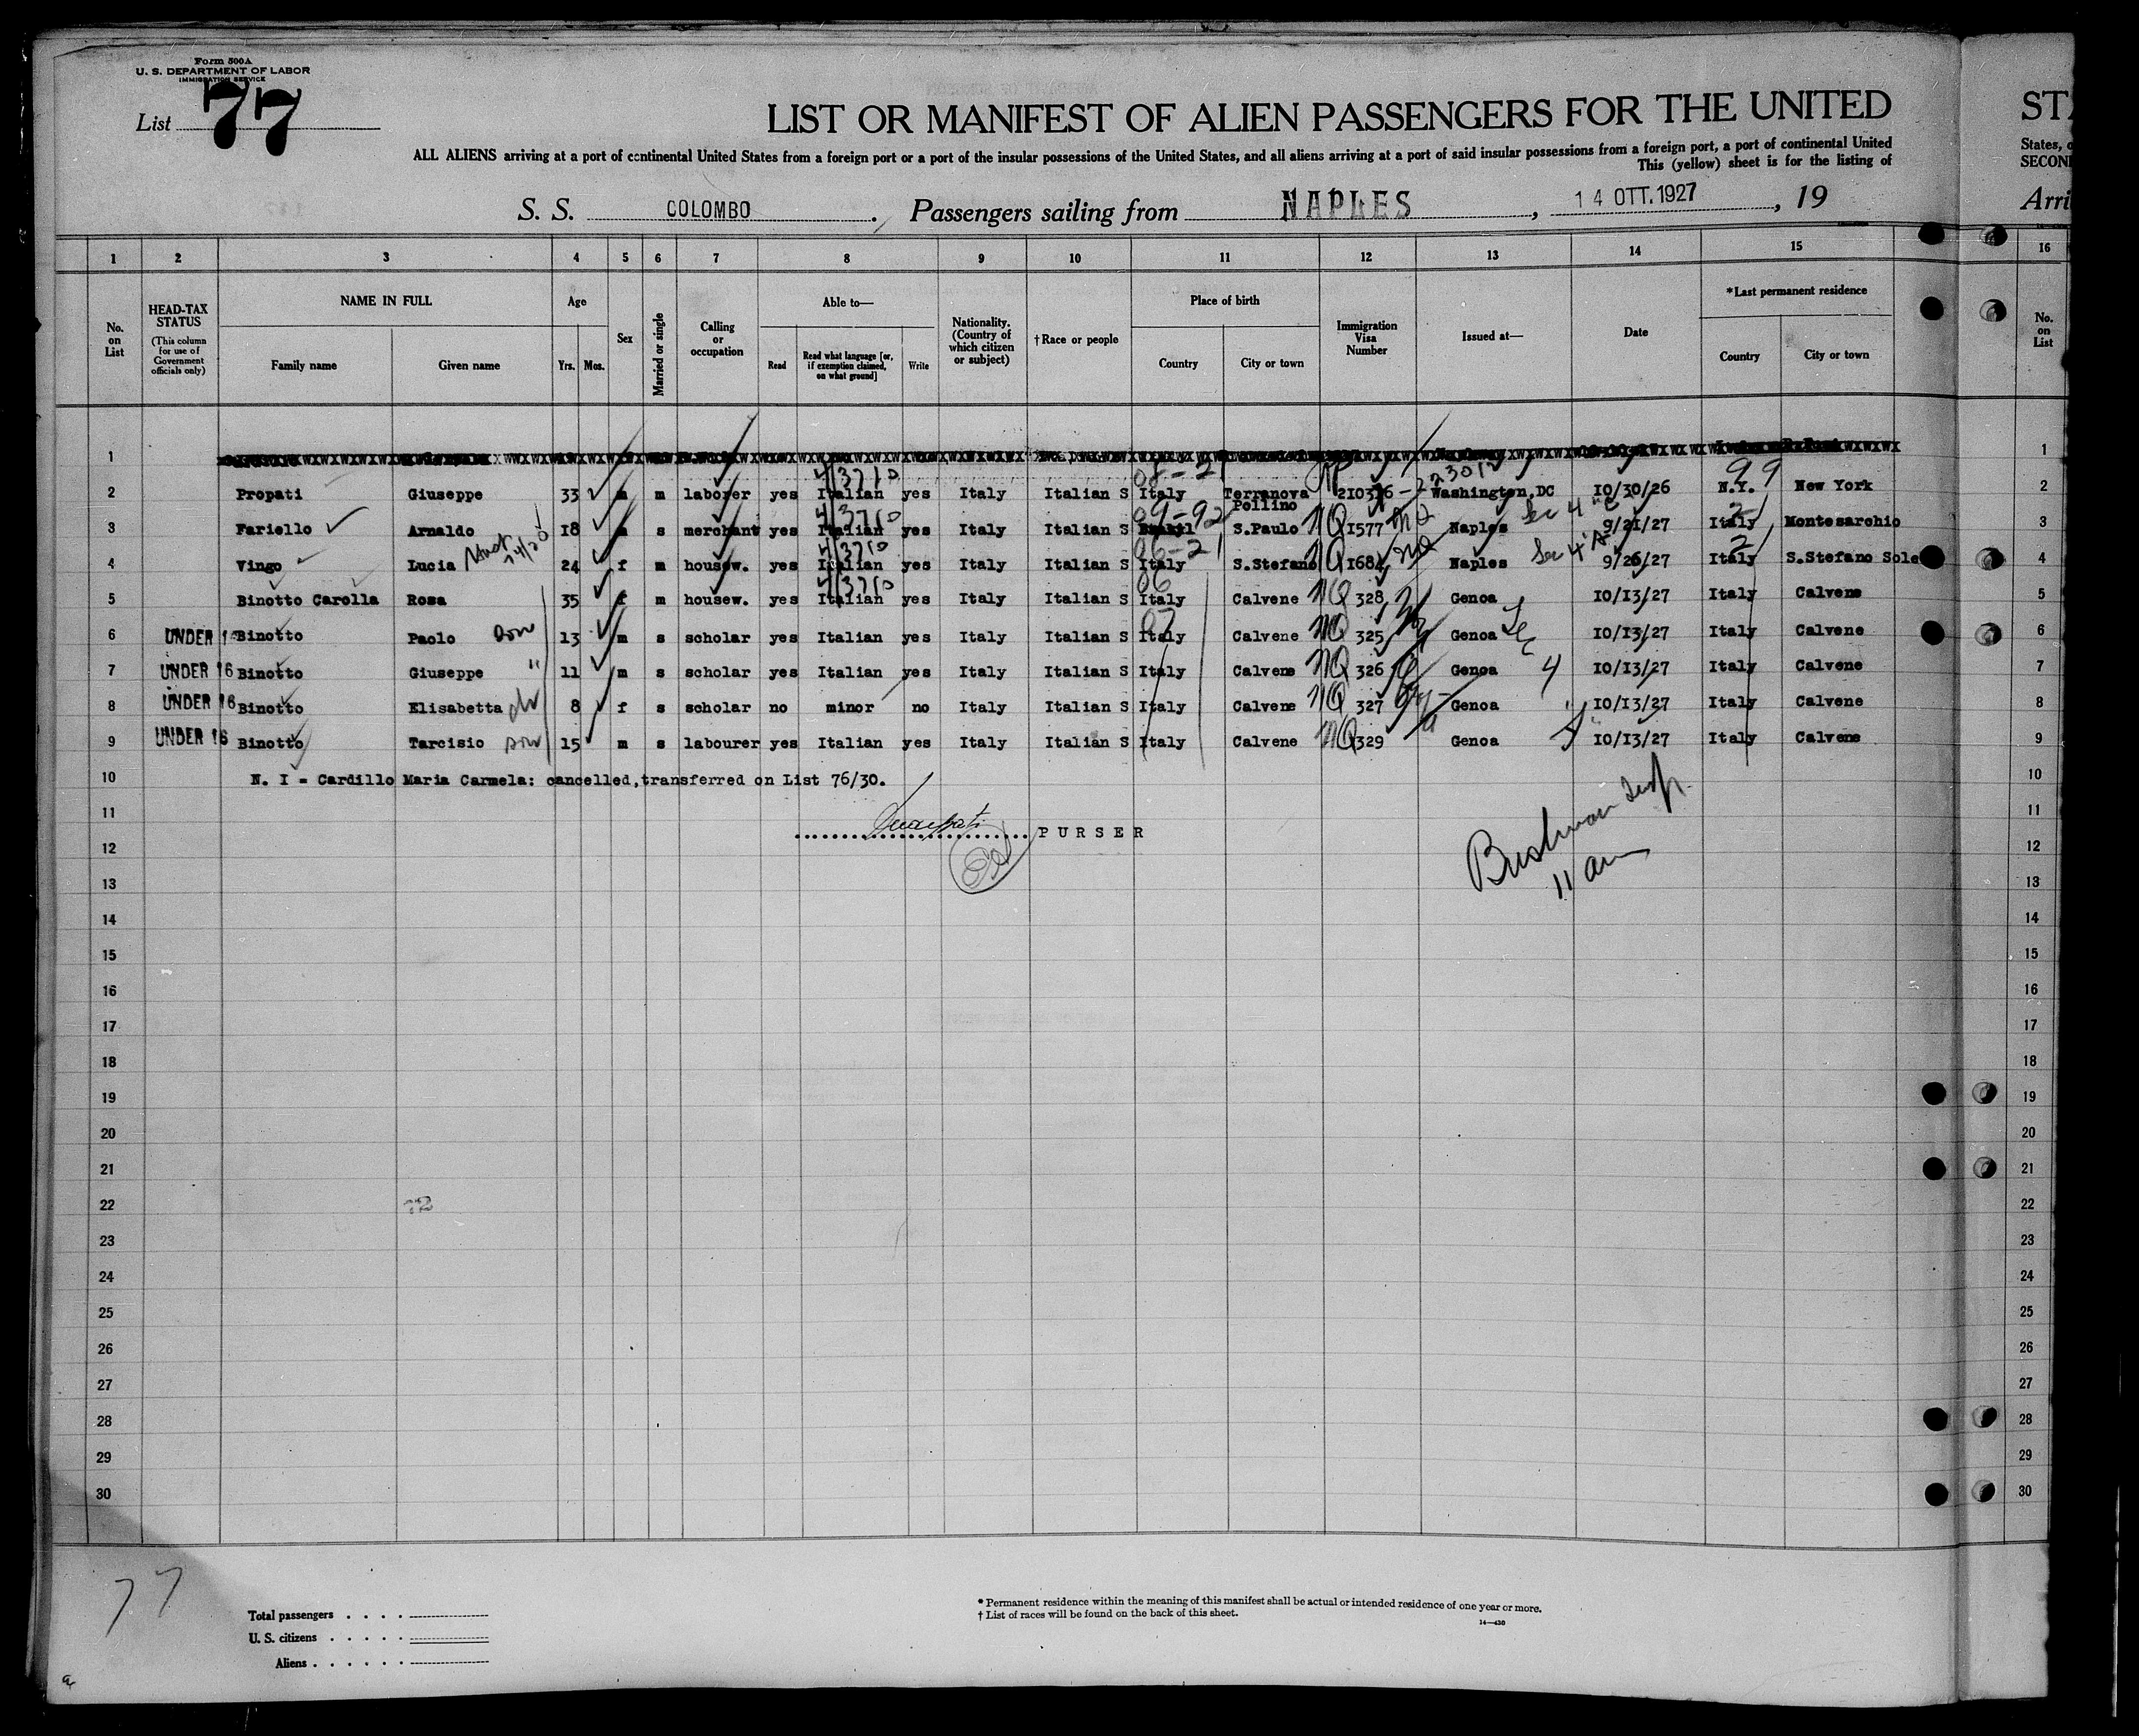 Form 500A
U. S. DEPARTMENT OF LABOR
IMMIGRATION SERVICE
List 77
LIST OR MANIFEST OF ALIEN PASSENGERS FOR THE UNITED
ALL ALIENS arriving at a port of continental United States from a foreign port or a port of the insular possessions of the United States, and all aliens arriving at a port of said insular possessions from a foreign port, a port of continental United
This (yellow) sheet is for the listing of
States,
Arri
S. S. COLOMBO. Passengers sailing from NAPLES, 14 OTT. 1927, 19
1 2 3 4 5 6 7 8 9 10 11 12 13 14 15 16
No. on List
HEAD-TAX STATUS (This column for use of Government officials only)
NAME IN FULL Family name Given name
Age Yrs. Mos.
Sex
Married or single
Calling or occupation
Able to— Read Read what language [or, if exemption claimed, on what ground] Write
Nationality. (Country of which citizen or subject)
†Race or people
Place of birth Country City or town
Immigration Visa Number
Issued at—
Date
*Last permanent residence Country City or town
No. on List
1 1
2 Propati Giuseppe 33 m m laborer yes Italian yes Italy Italian S Italy Terranova Pollino 210376 Washington,DC 10/30/26 N.Y. New York 2
3 Fariello Arnaldo 18 m s merchant yes Italian yes Italy Italian S S.Paulo NQ 1577 Naples Sec 4 9/21/27 Italy Montesarchio 3
4 Vingo Lucia 24 f m housew. yes Italian yes Italy Italian S Italy S.Stefano NQ 1684 Naples Sec 4 9/26/27 Italy S.Stefano Sole 4
5 Binotto Carolla Rosa 35 f m housew. yes Italian yes Italy Italian S Italy Calvene NQ 328 Genoa 10/13/27 Italy Calvene 5
6 UNDER 16 Binotto Paolo son 13 m s scholar yes Italian yes Italy Italian S Italy Calvene NQ 325 Genoa 10/13/27 Italy Calvene 6
7 UNDER 16 Binotto Giuseppe " 11 m s scholar yes Italian yes Italy Italian S Italy Calvene NQ 326 Genoa 4 10/13/27 Italy Calvene 7
8 UNDER 16 Binotto Elisabetta 8 f s scholar no minor no Italy Italian S Italy Calvene NQ 327 Genoa 10/13/27 Italy Calvene 8
9 UNDER 16 Binotto Tarcisio son 15 m s labourer yes Italian yes Italy Italian S Italy Calvene NQ 329 Genoa 10/13/27 Italy Calvene 9
10 N. I = Cardillo Maria Carmela: cancelled,transferred on List 76/30. 10
11 11
PURSER
Bushman Insp.
11 am
12 12
13 13
14 14
15 15
16 16
17 17
18 18
19 19
20 20
21 21
22 22
23 23
24 24
25 25
26 26
27 27
28 28
29 29
30 30
77
Total passengers
U. S. citizens
Aliens
* Permanent residence within the meaning of this manifest shall be actual or intended residence of one year or more.
† List of races will be found on the back of this sheet.
14—430